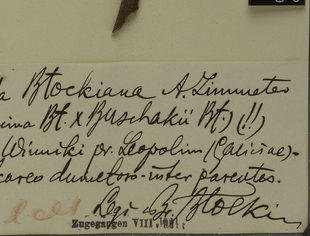 a Błockiana A. Zimmeter
ima Bł. x Buschakii Bł.) (!!)
Winniki pr. Leopolim (Galiciae) -
dumetoso - inter parentes.
Br. Błocki
Zugegangen VIII,